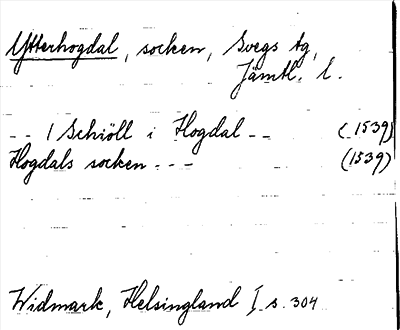 Ytterhogdal, socken, Svegs tg,
Jämtl. l.
-- i Schiöll i Hogdal -- (1539)
Hogdals socken --- (1539)
Widmark, Helsingland I s. 304